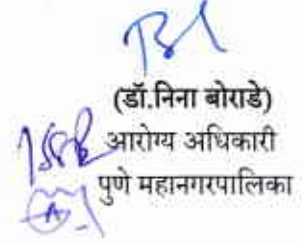 (डॉ.निना बोराडे)
आरोग्य अधिकारी
पुणे महानगरपालिका